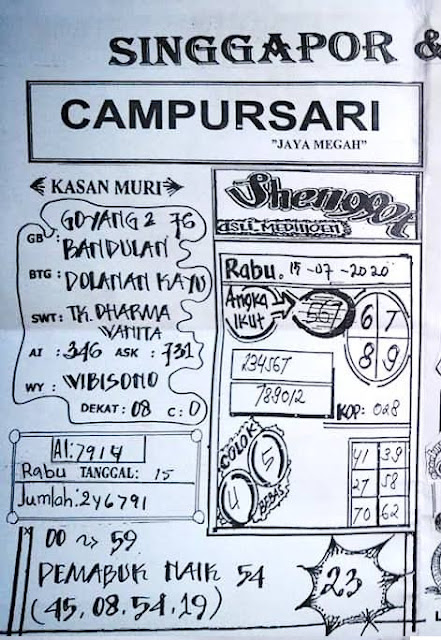 SINGGAPOR &
CAMPURSARI
"JAYA MEGAH"
KASAN MURI
GB : GOYANG2 76
BANDULAN
BTG : DOLANAN KAYU
SWT : TK. DHARMA
WANITA
AI : 346 ASK : 731
WY : WIBISONO
DEKAT : 08 C : 0
AI: 7914
Rabu TANGGAL: 15
Jumlah: 246791
ASLI MEDINJOEN
Rabu. 15 - 07 - 2020
Angka
Ikut
667
6 7
8 9
234567
789012
KOP: 028
COLOK
4 5
BEBAS
41 39
27 58
70 62
00 ~> 59
PEMABUK NAIK 54
(45.08.54.19)
23